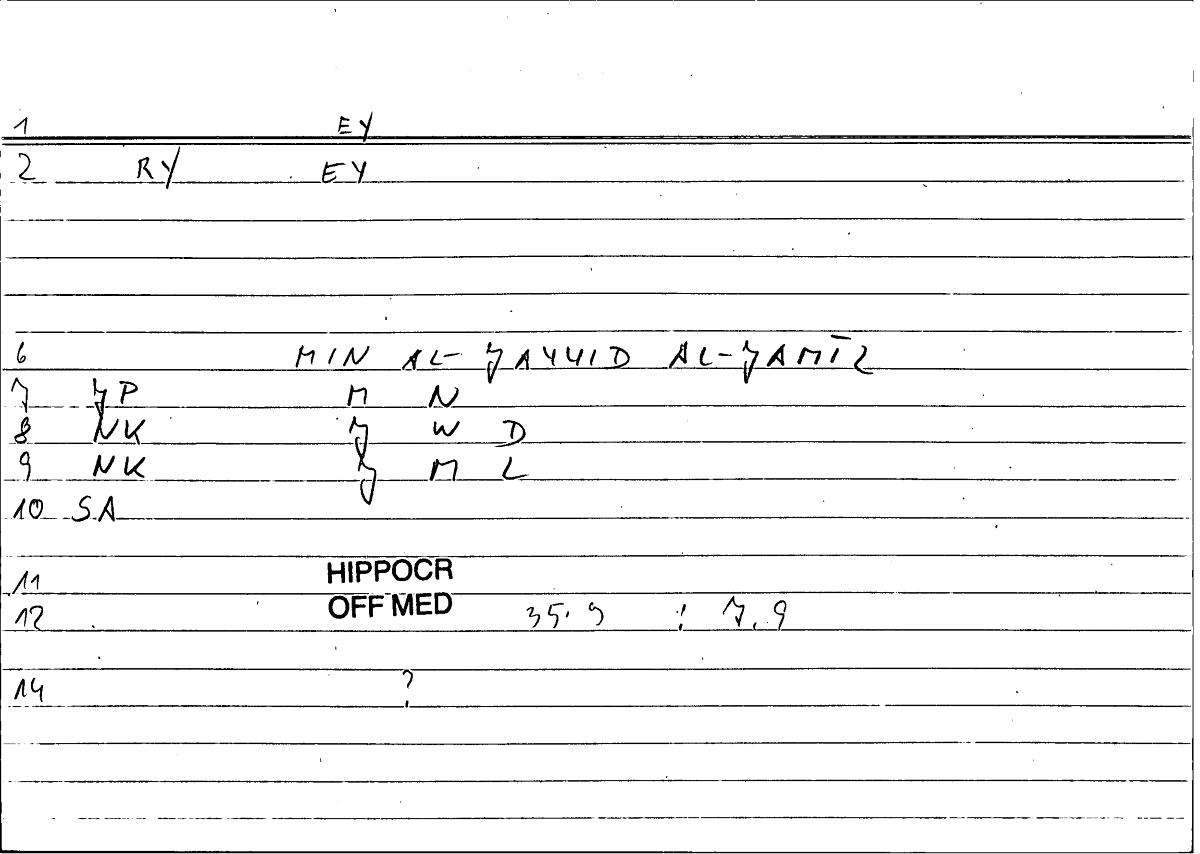 1 EY
2 RY EY
6 MIN AL-ǮAYYID AL-ǮAMĪL
7 ǮP M N
8 NK Ǯ W D
9 NK Ǯ M L
10 SA
11 HIPPOCR
12 OFF MED 35.9 : 7.9
14 ?